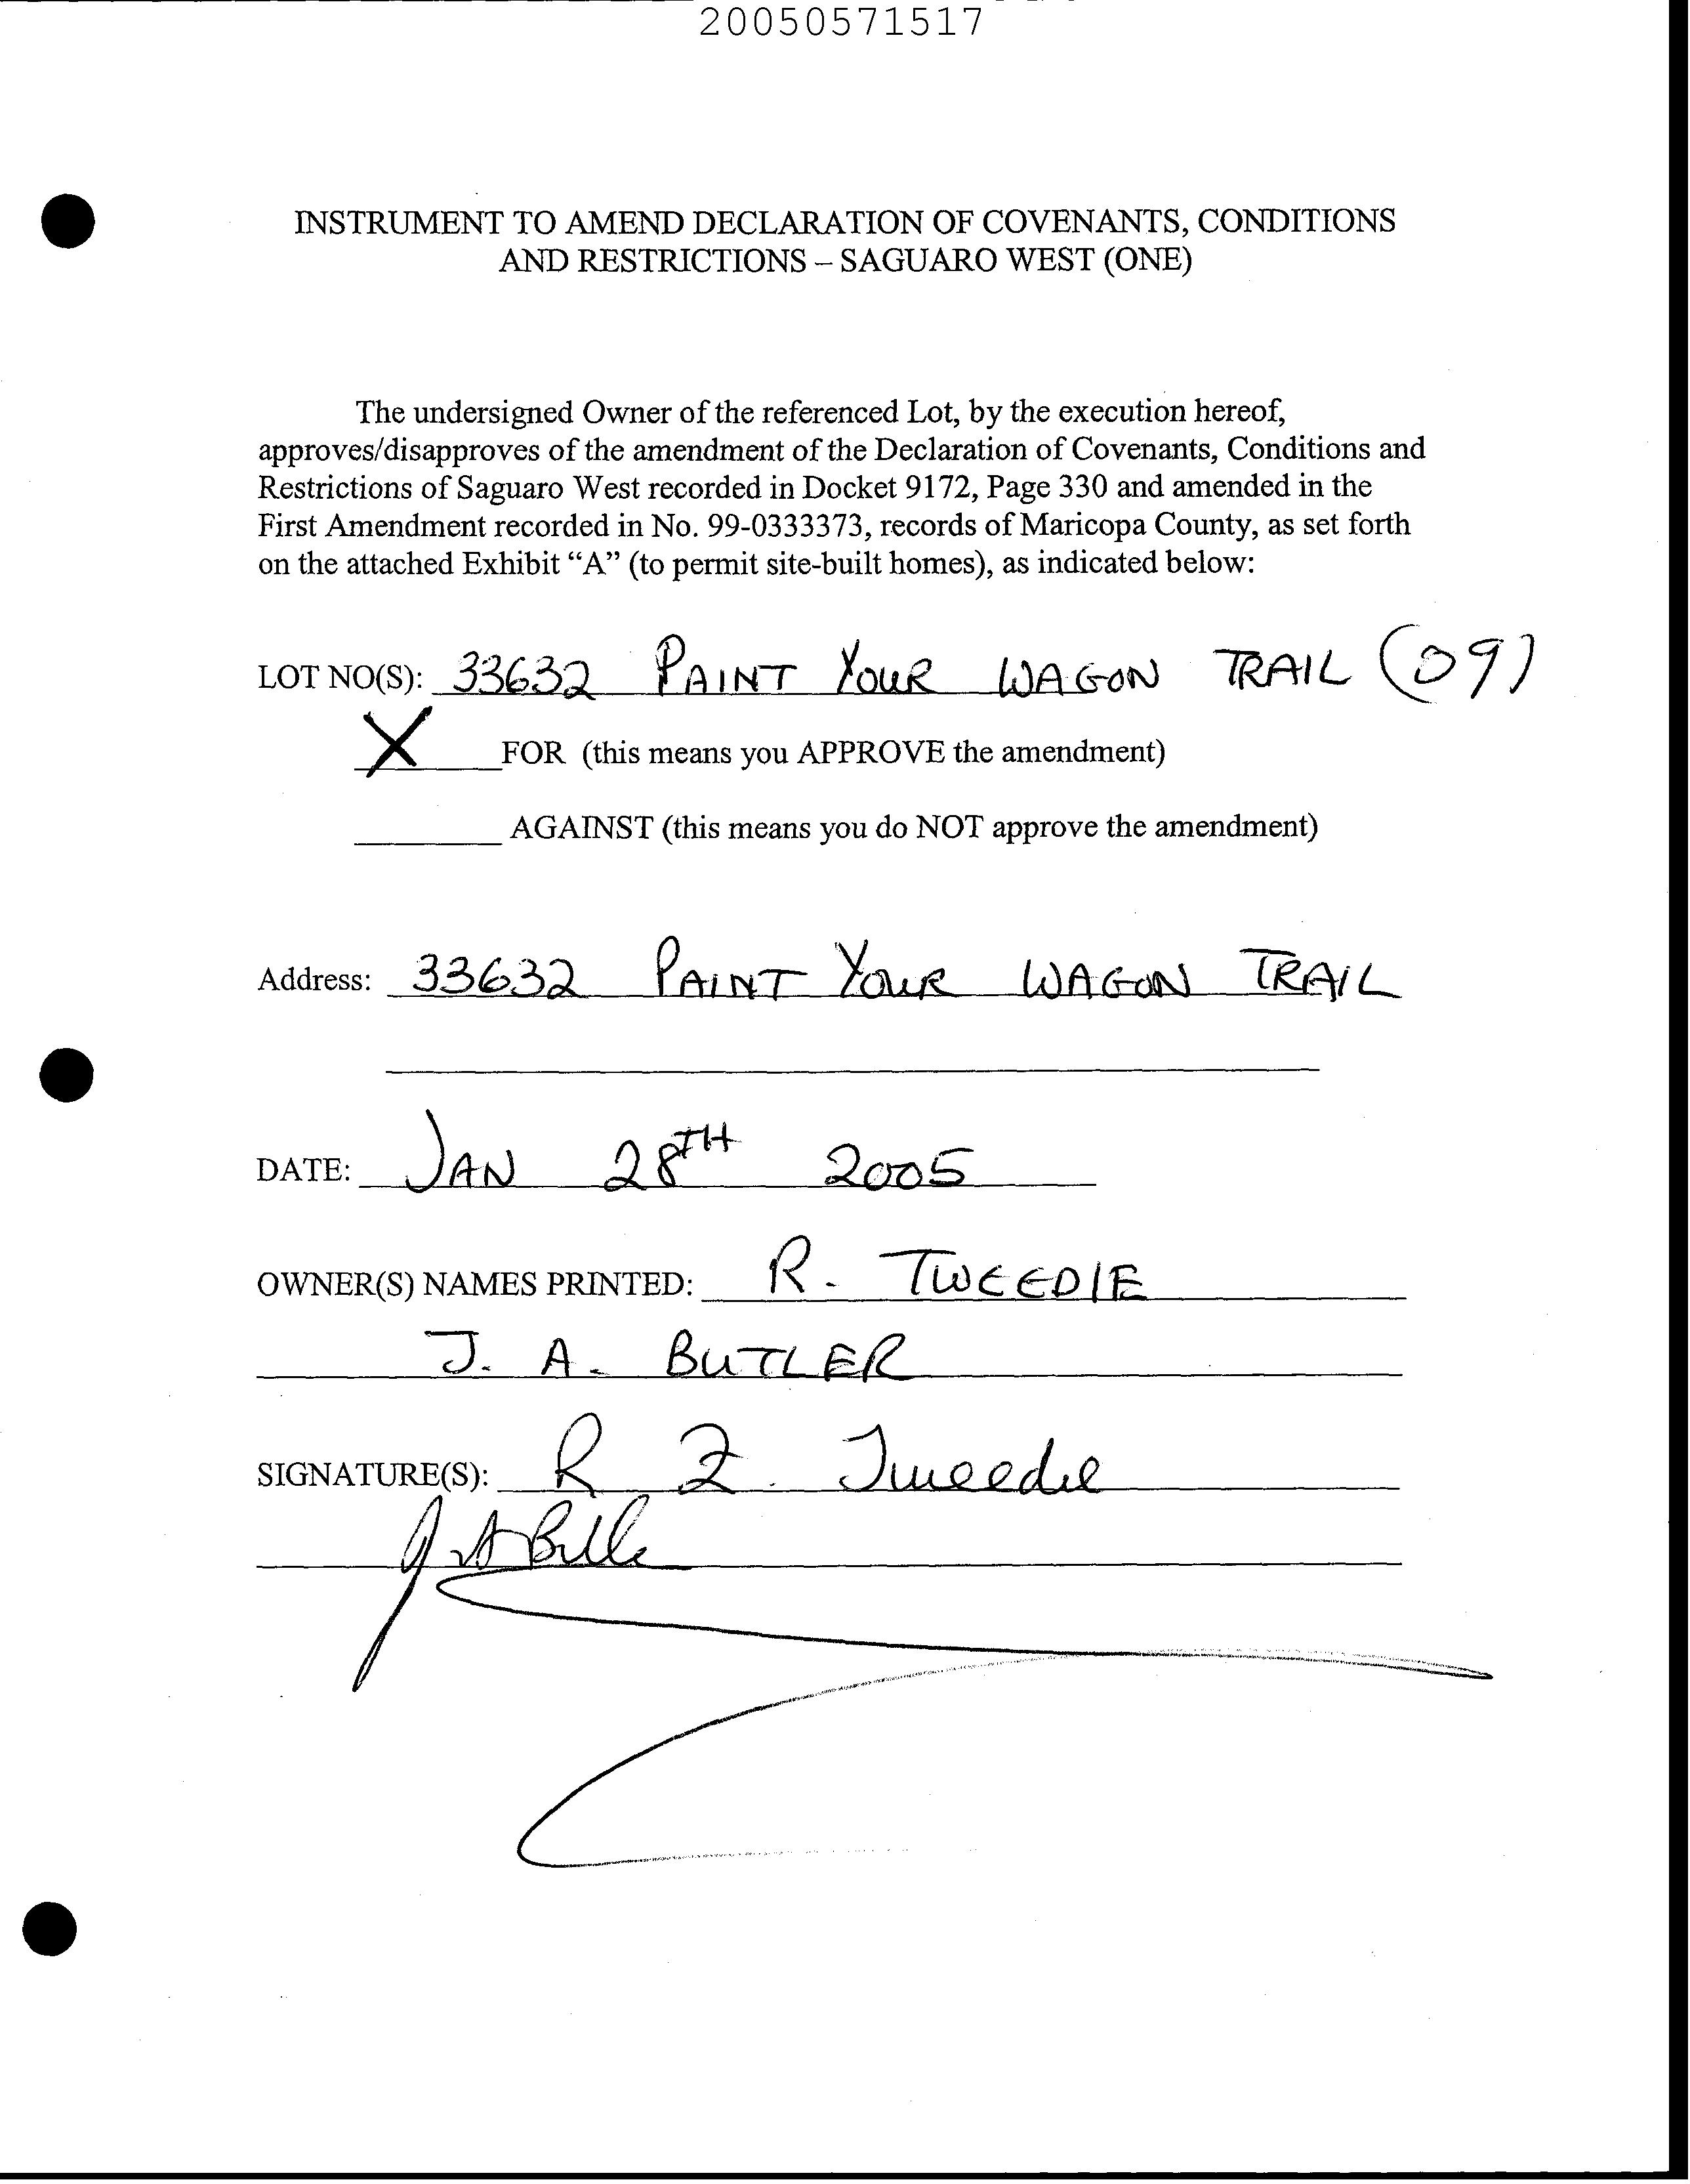 20050571517
INSTRUMENT TO AMEND DECLARATION OF COVENANTS, CONDITIONS
AND RESTRICTIONS – SAGUARO WEST (ONE)
The undersigned Owner of the referenced Lot, by the execution hereof,
approves/disapproves of the amendment of the Declaration of Covenants, Conditions and
Restrictions of Saguaro West recorded in Docket 9172, Page 330 and amended in the
First Amendment recorded in No. 99-0333373, records of Maricopa County, as set forth
on the attached Exhibit “A” (to permit site-built homes), as indicated below:
LOT NO(S): 33632 PAINT YOUR WAGON TRAIL (09)
X FOR (this means you APPROVE the amendment)
AGAINST (this means you do NOT approve the amendment)
Address: 33632 PAINT YOUR WAGON TRAIL
DATE: JAN 28TH 2005
OWNER(S) NAMES PRINTED: R. TWEEDIE
J. A. BUTLER
SIGNATURE(S): R Tweedie